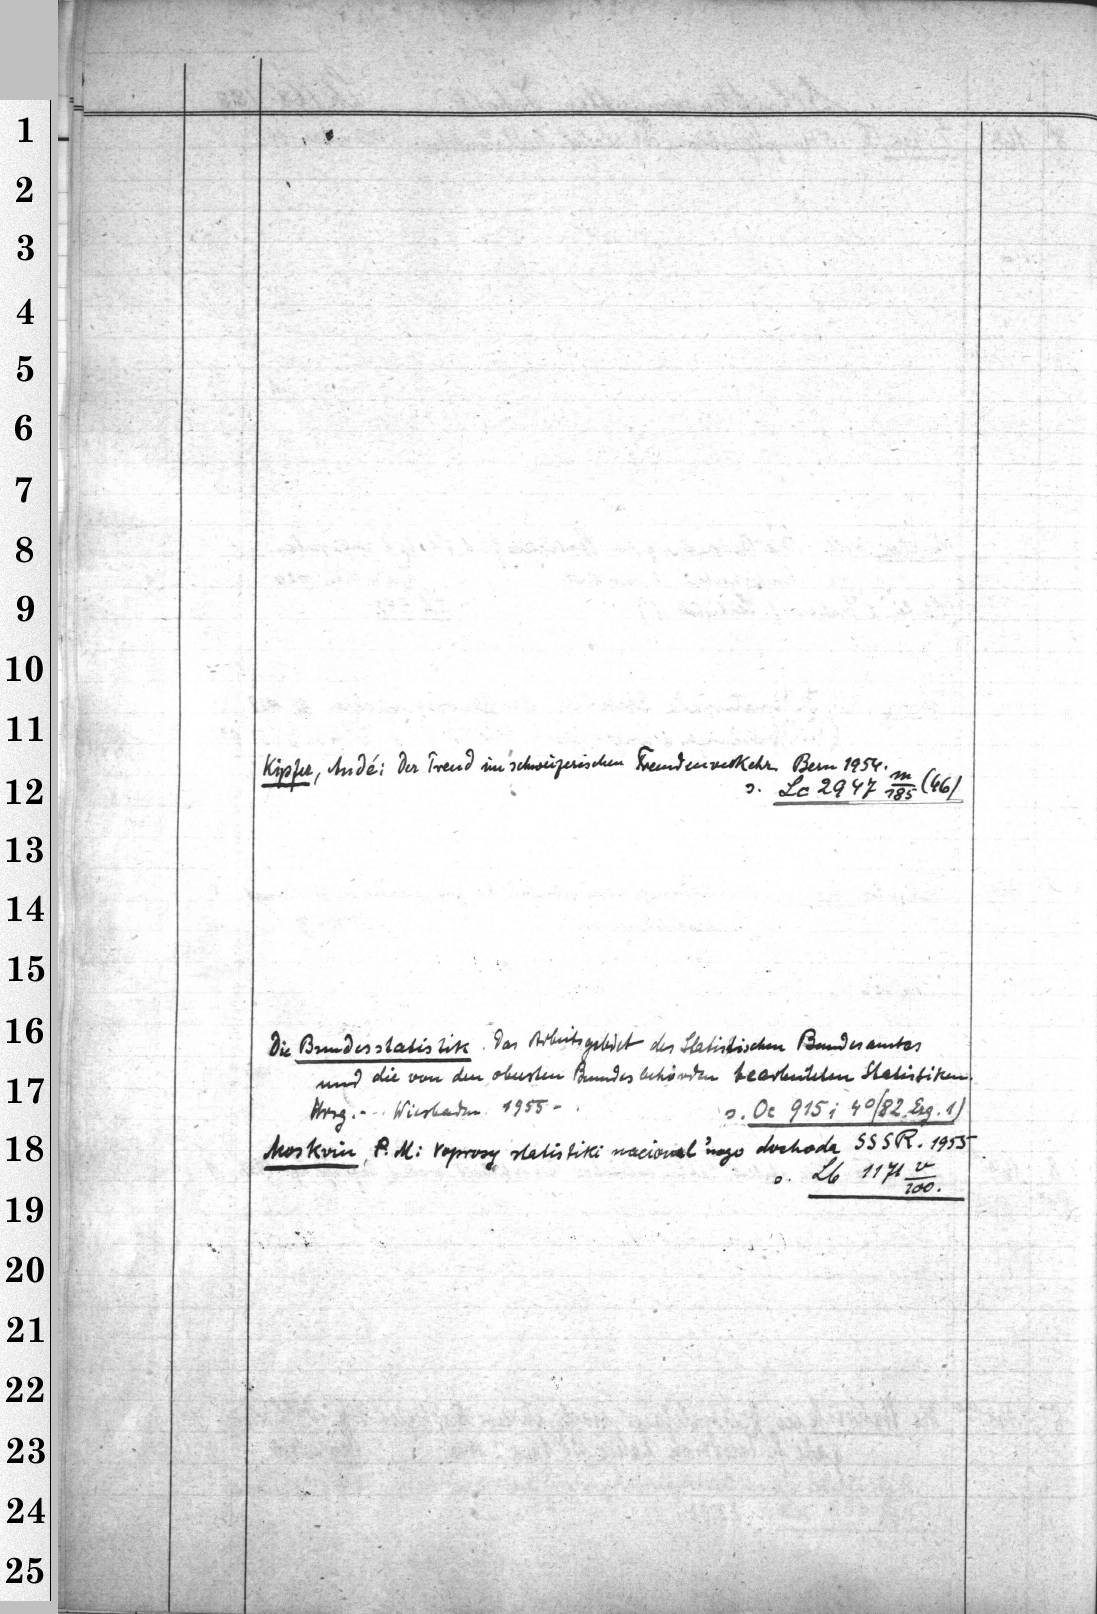 1
2
3
4
5
6
7
8
9
10
11
Kipfer, André: Der Trend im schweizerischen Fremdenverkehr. Bern 1954.
12
s. Lc 2947 m/185 (46)
13
14
15
16
Die Bundesstatistik. Das Arbeitsgebiet des Statistischen Bundesamtes
und die von den obersten Bundesbehörden bearbeiteten Statistiken.
17
Hrsg. - Wiesbaden 1955 - . s. Oc 915i 4°(82. Erg. 1)
18
Moskvin, P. M: Voprosy statistiki nacional'nogo dochoda SSSR. 1955
s. Lb 1171 v/100.
19
20
21
22
23
24
25